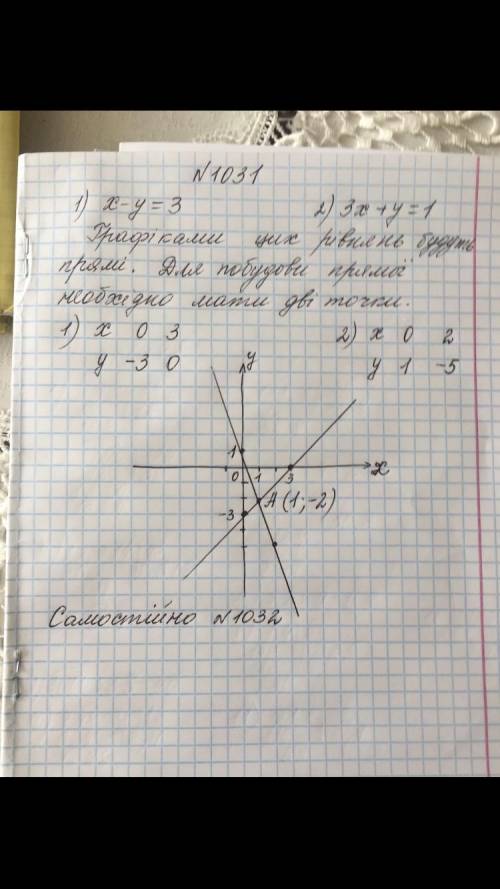 №1031
1) x-y=3 2) 3x+y=1
Графіками цих рівнянь будуть
прямі. Для побудови прямої
необхідно мати дві точки.
1) x 0 3 2) x 0 2
y -3 0 y 1 -5
y
1
0 1 3 x
A(1;-2)
-3
Самостійно №1032